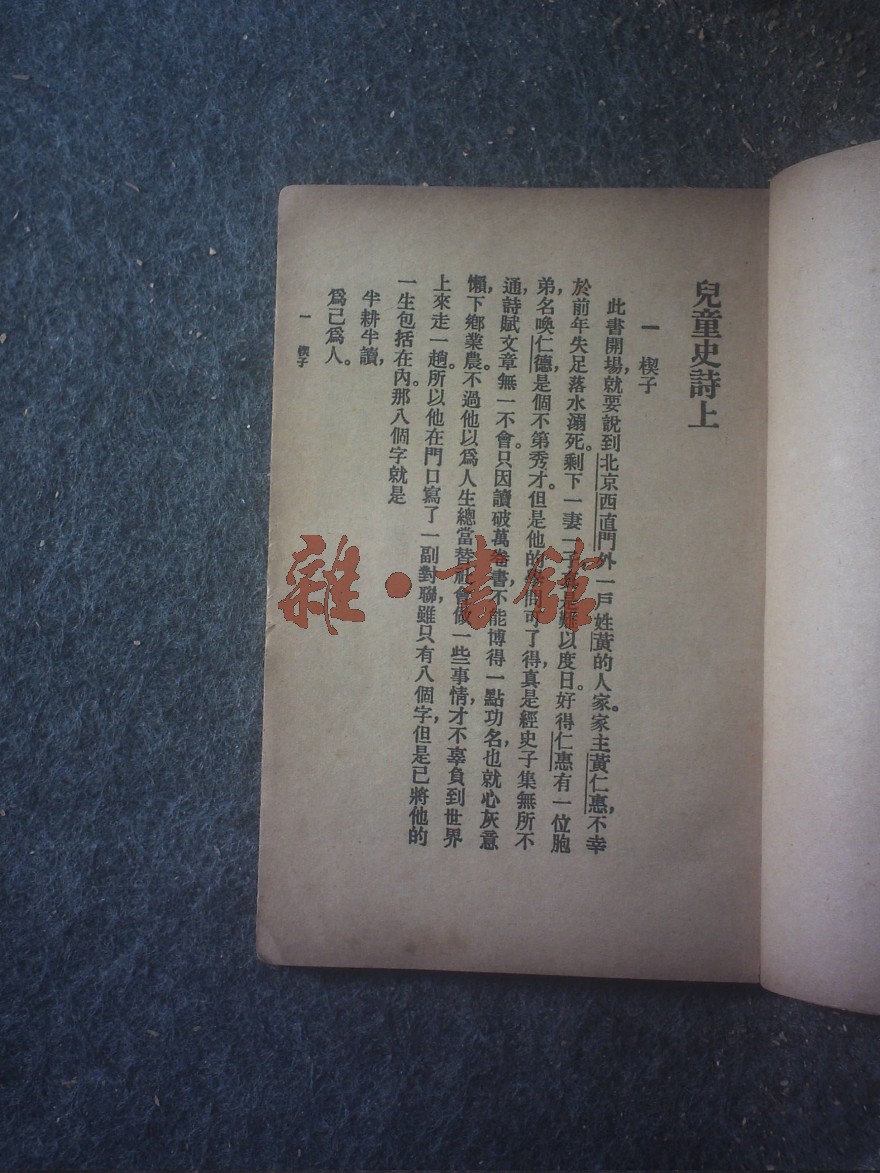 兒童史詩上
一 楔子
此書開場，就要說到北京西直門外一戶姓黃的人家。家主黃仁惠，不幸
於前年失足落水溺死。剩下一妻一子，真是難以度日。好得仁惠有一位胞
弟，名喚仁德，是個不第秀才。但是他的學問可了得，真是經史子集無所不
通，詩賦文章無一不會。只因讀破萬卷書，不能博得一點功名，也就心灰意
懶，下鄉業農。不過他以爲人生總當替社會做一些事情，才不辜負到世界
上來走一趟。所以他在門口寫了一副對聯，雖只有八個字，但是已將他的
一生包括在內。那八個字就是
半耕半讀，
爲己爲人。
一 楔子
雜·書館